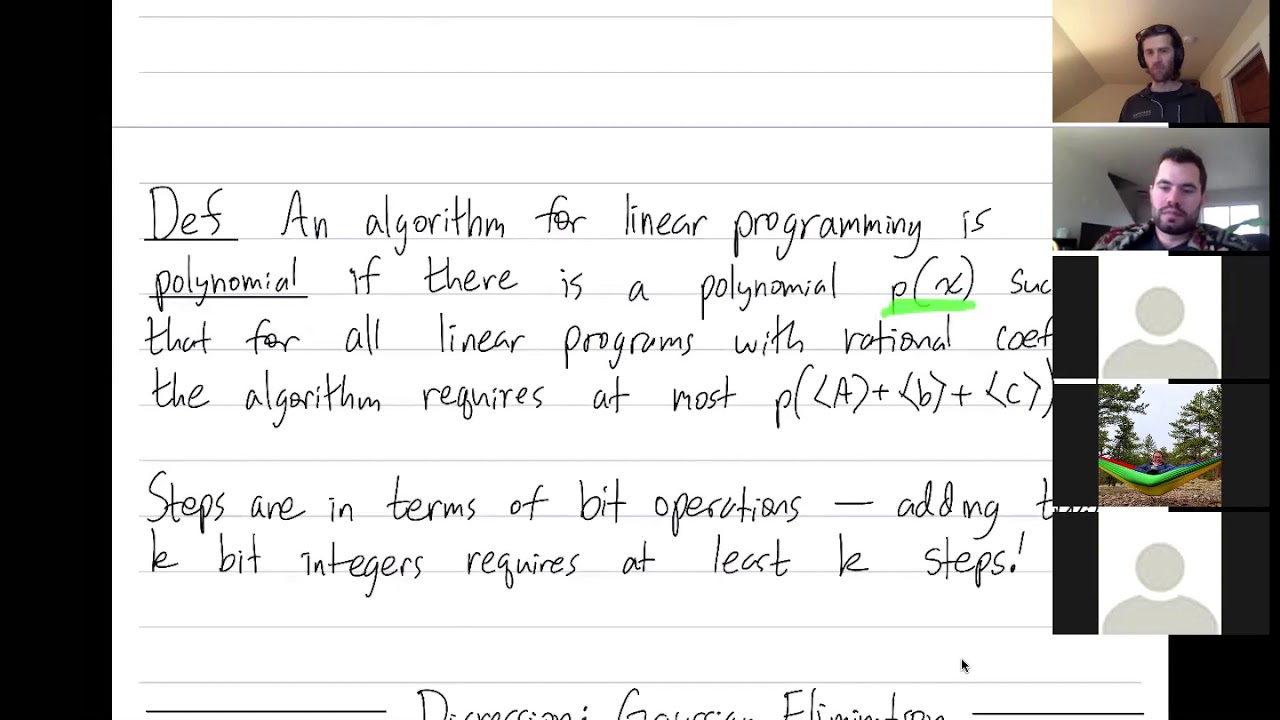 Def An algorithm for linear programming is
polynomial if there is a polynomial p(x) suc
that for all linear programs with rational coef
the algorithm requires at most p(⟨A⟩+⟨b⟩+⟨c⟩)
Steps are in terms of bit operations — adding
k bit integers requires at least k steps!
Digression: Gaussian Elimination